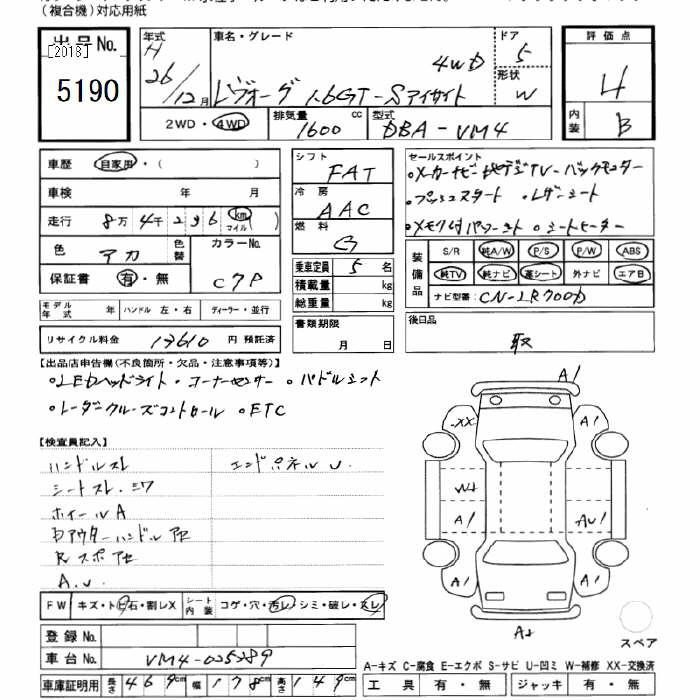 (複合機)対応用紙
出品No.
[2018]
5190
年式 H 26/12月
車名・グレード
レヴォーグ 1.6GT-Sアイサイト 4WD
ドア 5
形状 W
評価点
4
内装 B
2WD・4WD
排気量 1600 cc
型式 DBA-VM4
車歴 自家用・( )
車検 年 月
走行 8万4千296 km マイル ( )
色 アカ
色替
カラーNo. C7P
保証書 有・無
モデル年式 年
ハンドル 左・右
ディーラー・並行
リサイクル料金 13610 円 預託済
シフト FAT
冷房 AAC
燃料 G
乗車定員 5 名
積載量 kg
総重量 kg
書類期限
月 日
セールスポイント
・メーカーナビ・地デジTV・バックモニター
・プッシュスタート ・レザーシート
・メモリ付パワーシート ・シートヒーター
装備品
S/R 純A/W P/S P/W ABS
純TV 純ナビ 革シート 外ナビ エアB
ナビ型番: CN-LR700D
後日品
取
【出品店申告欄(不良箇所・欠品・注意事項等)】
・LEDヘッドライト・コーナーセンサー ・パドルシフト
・レーダークルーズコントロール ・ETC
【検査員記入】
ハンドルスレ
エンドパネルU
シートスレ・シワ
ホイールA
Rスポ
A.U
FW キズ・トビ石・割レX
シート内装 コゲ・穴・汚レ・シミ・破レ・スレ
登録No.
車台No. VM4-025289
車庫証明用 長さ 469cm 幅 178cm 高さ 149cm
A1
XX
A1
W1
A1
AU1
A1
A1
A2
スペア
A-キズ C-腐食 E-エクボ S-サビ U-凹ミ W-補修 XX-交換済
工具 有・無 ジャッキ 有・無